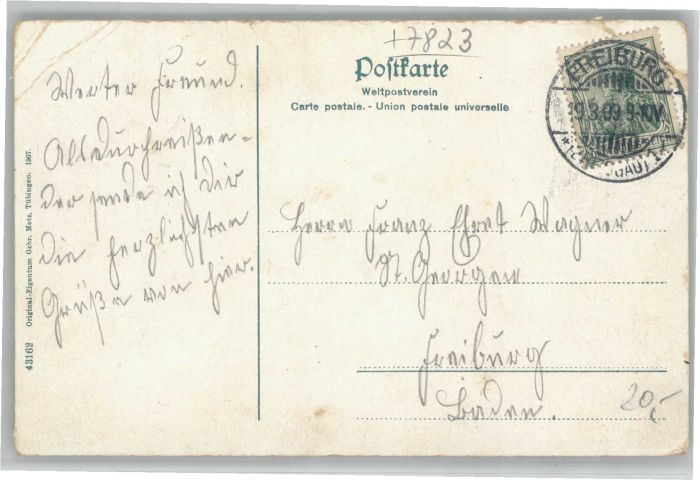 +7823
Postkarte
Weltpostverein
Carte postale. - Union postale universelle
FREIBURG
19.3.09 9-10V.
Werter Freund.
Als durchreißen-
der sende ich dir
die herzlichsten
Grüße von hier.
Herrn Franz Wagner
St. Georgen
Freiburg
Baden.
20,-
43162 Original-Eigentum Gebr. Metz, Tübingen. 1907.